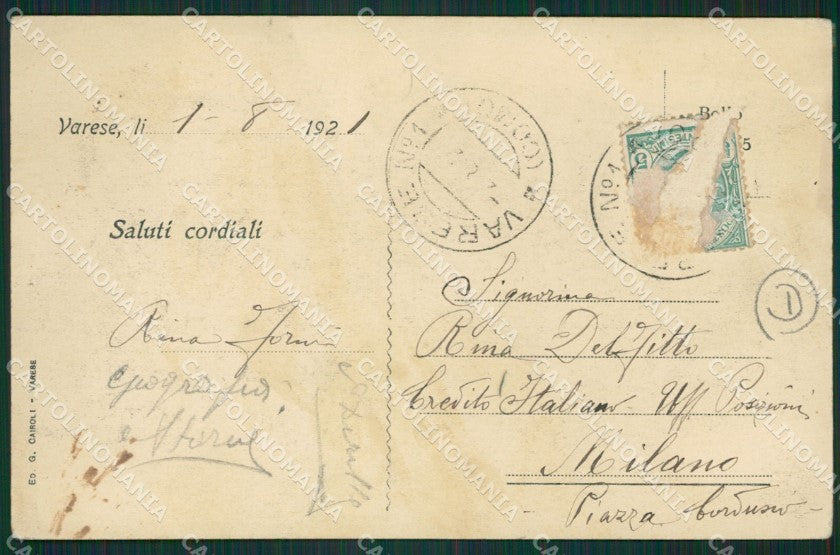 Varese, li 1-8 1921
Saluti cordiali
Rina Forni
geografia
e Storia
ED. G. CAIROLI - VARESE
VARESE No 1 (COMO)
Bollo
5
No 1
Signorina
Rina Del Fitto
Credito Italiano Uff Posizioni
Milano
Piazza Cordusio
D
CARTOLINOMANIA